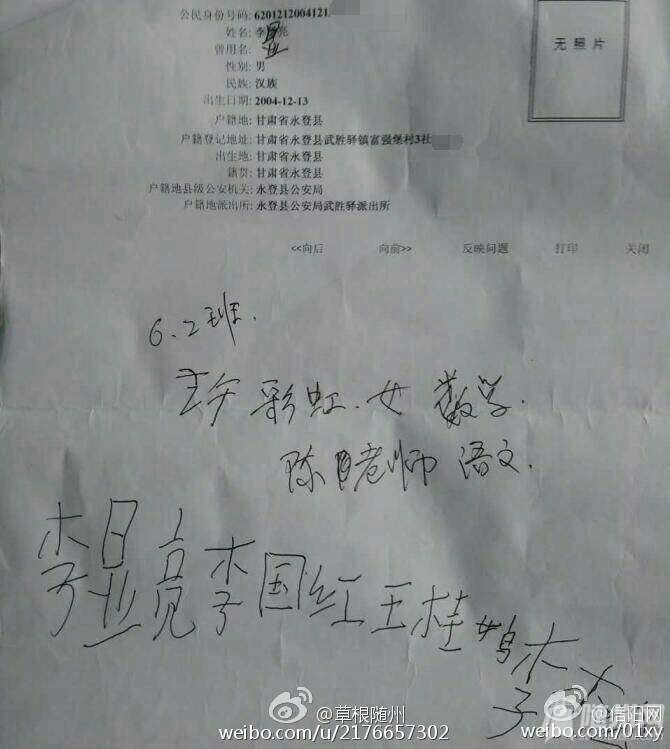 公民身份号码: 6201212004121
姓名: 李显亮
曾用名:
性别: 男
民族: 汉族
出生日期: 2004-12-13
户籍地: 甘肃省永登县
户籍登记地址: 甘肃省永登县武胜驿镇富强堡村3社
出生地: 甘肃省永登县
籍贯: 甘肃省永登县
户籍地县级公安机关: 永登县公安局
户籍地派出所: 永登县公安局武胜驿派出所
无照片
<<向后 向前>> 反映问题 打印 关闭
6.2班.
彩虹.女 数学.
陈 老师 语文.
李显亮李国红王桂 李
@草根随州
weibo.com/u/2176657302
@信阳网
weibo.com/01xy